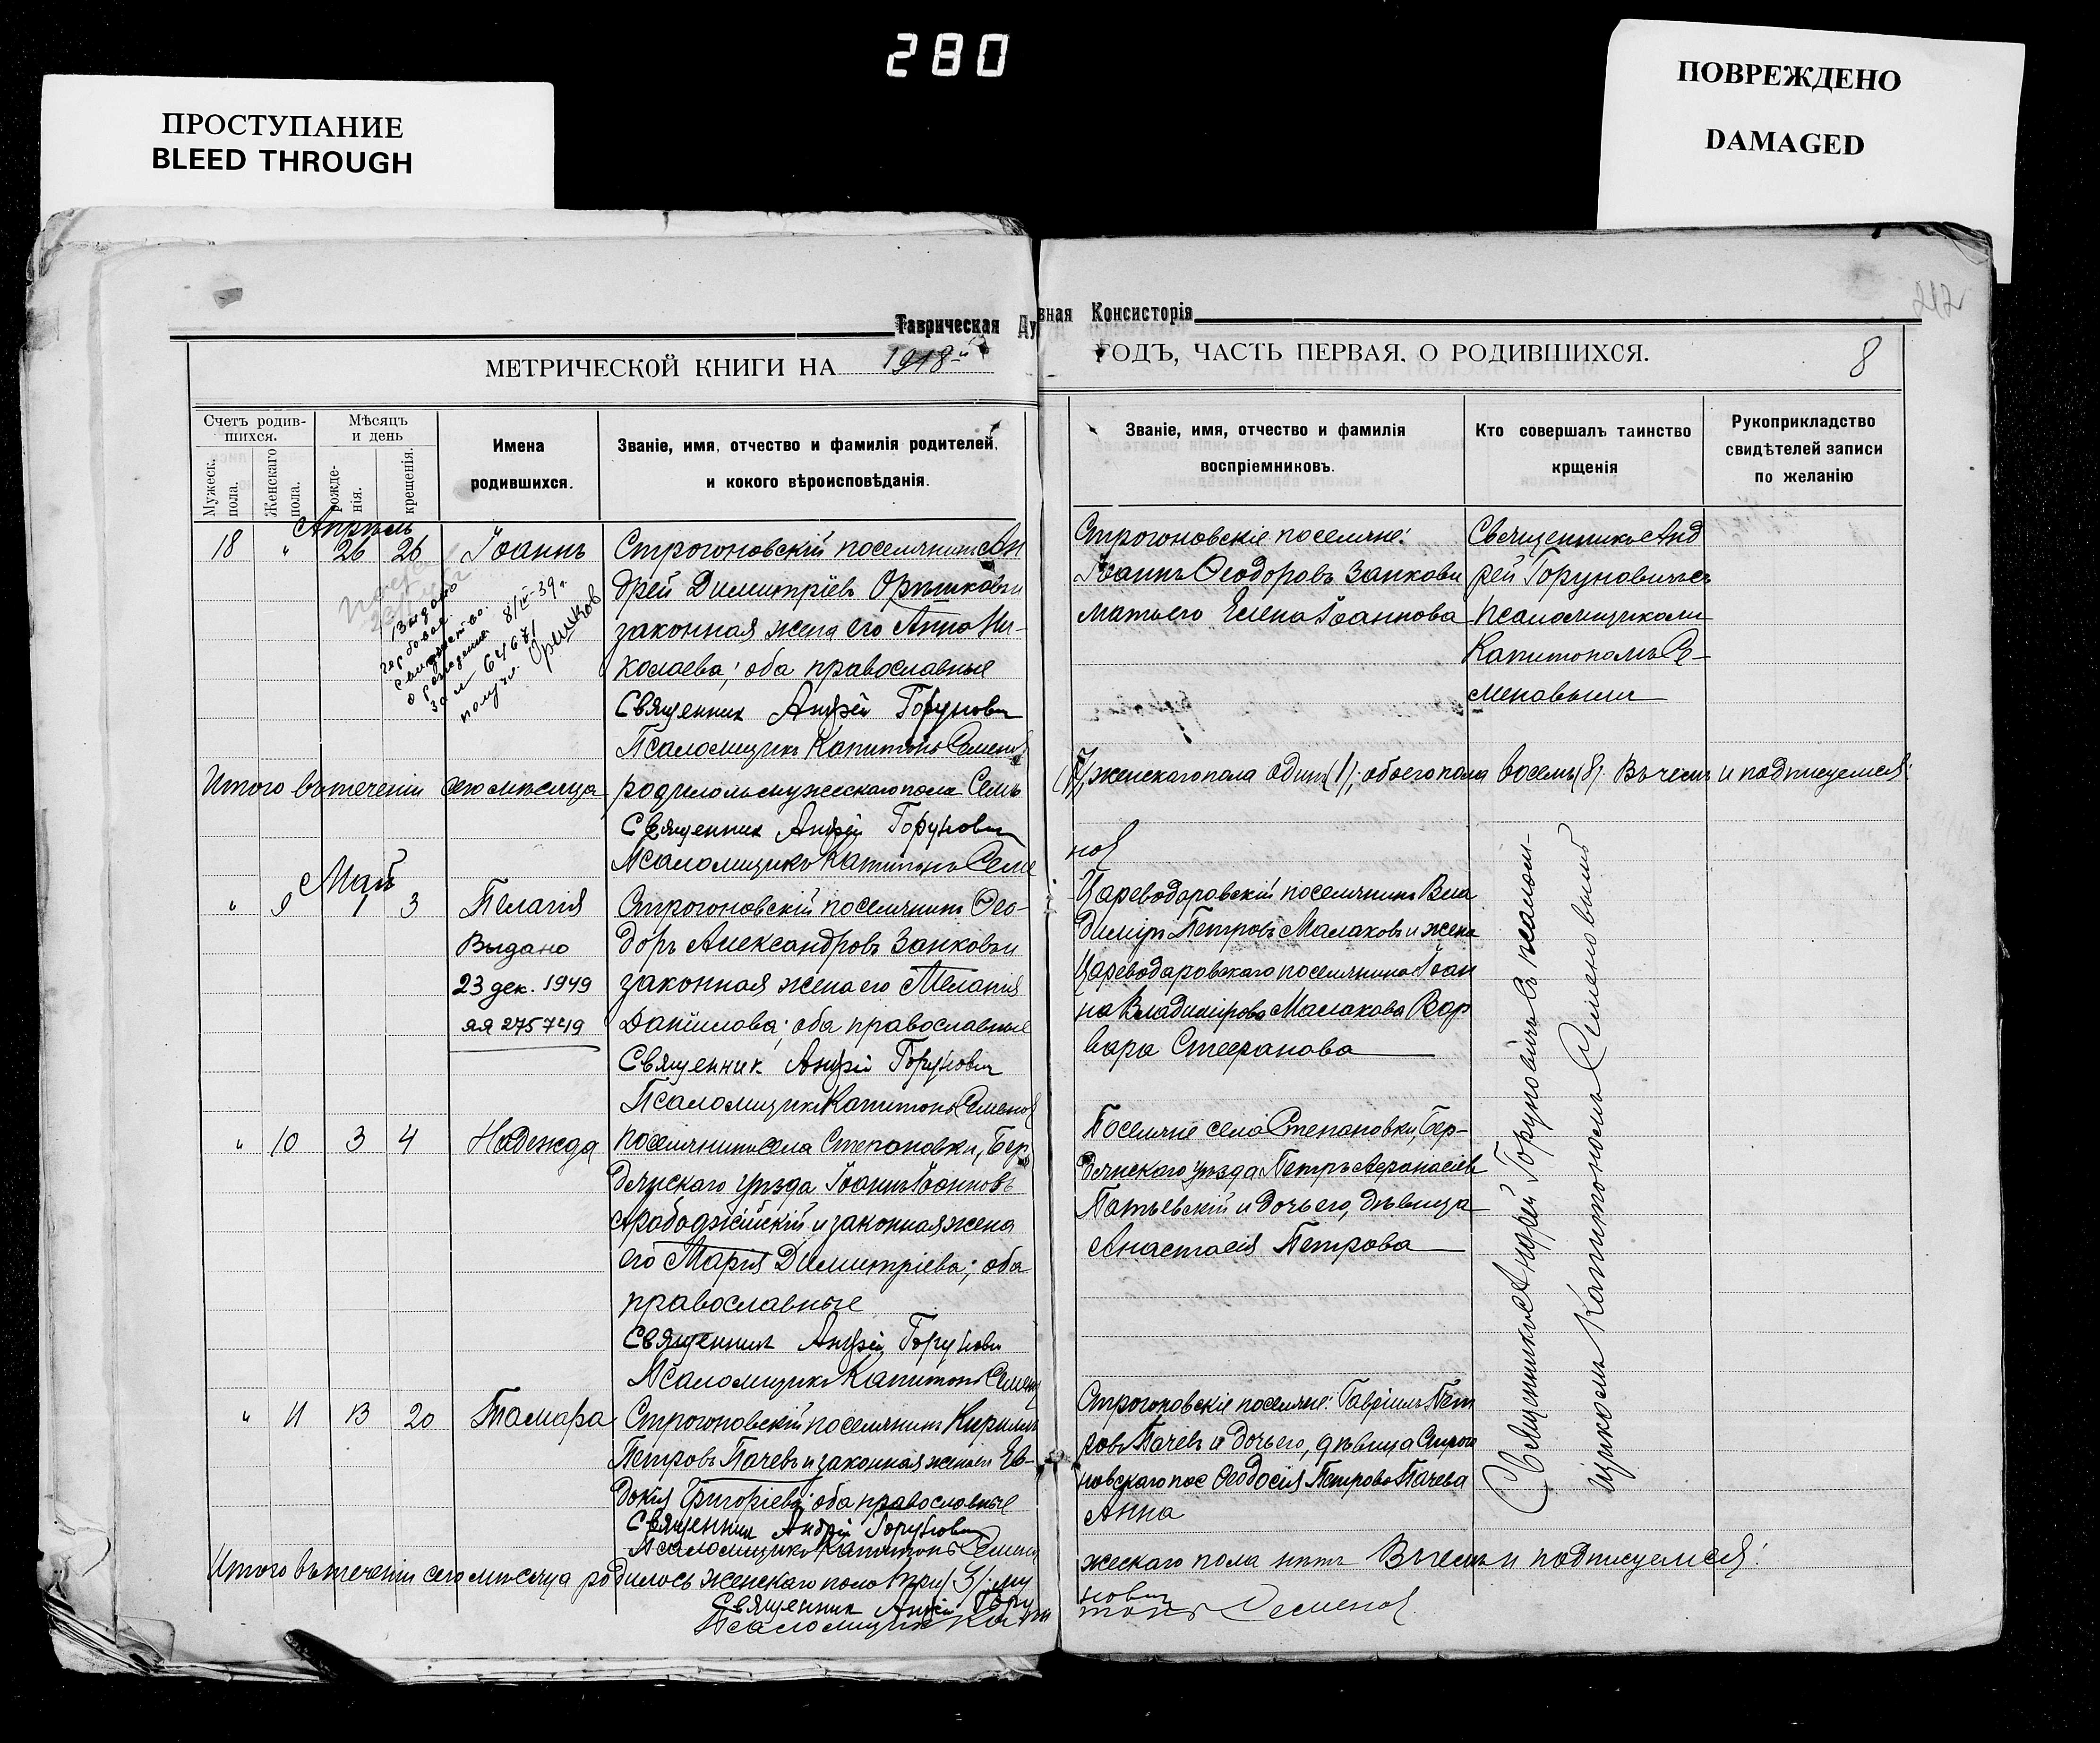 280
ПРОСТУПАНИЕ
BLEED THROUGH
ПОВРЕЖДЕНО
DAMAGED
212
Таврическая Ду вная Консисторія
МЕТРИЧЕСКОЙ КНИГИ НА 1918й ГОДЪ, ЧАСТЬ ПЕРВАЯ. О РОДИВШИХСЯ.
8
Счетъ родив-
шихся.
Мужеск.
пола.
Женскаго
пола.
Мѣсяцъ
и день
рожде-
нія.
крещенія.
Имена
родившихся.
Званіе, имя, отчество и фамилія родителей,
и кокого вѣроисповѣданія.
Званіе, имя, отчество и фамилія
воспріемниковъ.
Кто совершалъ таинство
крщенія
Рукоприкладство
свидѣтелей записи
по желанію
Апрѣль
18 " 26 26 Іоаннъ
Выдано
гербовое
свидетельство.
о рождении 8/IV-39г.
за № 64671
получ. Орешков
Строгоновскій поселянинъ Ан
дрей Димитріевъ Орѣшковъ и
законная жена его Анна Ни-
колаева; оба православные
Священник Андрей Горунович
Псаломщикъ Капитонъ Семенов
Строгоновскіе поселяне:
Іоаннъ Ѳеодоровъ Занковъ и
мать его Елена Іоаннова
Священникъ Анд
рей Горуновичъ съ
псаломщикомъ
Капитономъ Се-
меновымъ
Итого въ теченіи сего мѣсяца родилось мужескаго пола семь (7), женскаго пола один (1), обоего пола восемь (8). Въ чемъ и подписуемся:
Священник Андрей Горунович
Псаломщикъ Капитонъ Семе
нов
Май
" 9 1 3 Пелагія
Выдано
23 дек. 1949
ЯЯ 275749
Строгоновскій поселянинъ Ѳео-
доръ Александровъ Занковъ и
законная жена его Меланія
Даніилова; оба православные
Священник Андрей Горунович
Псаломщикъ Капитонъ Семенов
Цареводаровскій поселянинъ Вла
диміръ Петровъ Малаковъ и жена
Цареводаровскаго поселянина Іоан
на Владимірова Малакова Вар
вара Стефанова
Священникъ Андрей Горуновичъ съ псалом-
щикомъ Капитономъ Семеновымъ
" 10 3 4 Надежда
Поселянинъ села Степановки, Бер
дянскаго уѣзда Іоаннъ Іоанновъ
Арабаджійскій и законная жена
его Марія Димитріева; оба
православные
Священник Андрей Горунович
Псаломщикъ Капитонъ Семенов
Поселяне села Степановки, Бер-
дянскаго уѣзда Петръ Аѳанасіевъ
и дочь его, дѣвица
Анастасія Петрова
" 11 13 20 Тамара
Строгоновскій поселянинъ Кириллъ
Петровъ Пачевъ и законная жена его Ев-
докія Григоріева; оба православные
Священник Андрей Горунович
Псаломщикъ Капитонъ Семенов
Строгоновскіе поселяне: Гавріилъ Пет
ровъ Пачевъ и дочь его, дѣвица Строго
новскаго пос Ѳеодосія Петрова Пачева
Анна
Итого въ теченіи сего мѣсяца родилось женскаго пола три (3); му жескаго пола нѣтъ Въ чемъ и подписуемся:
Священник Андрей Гору нович
Псаломщикъ Капи тонъ Семенов